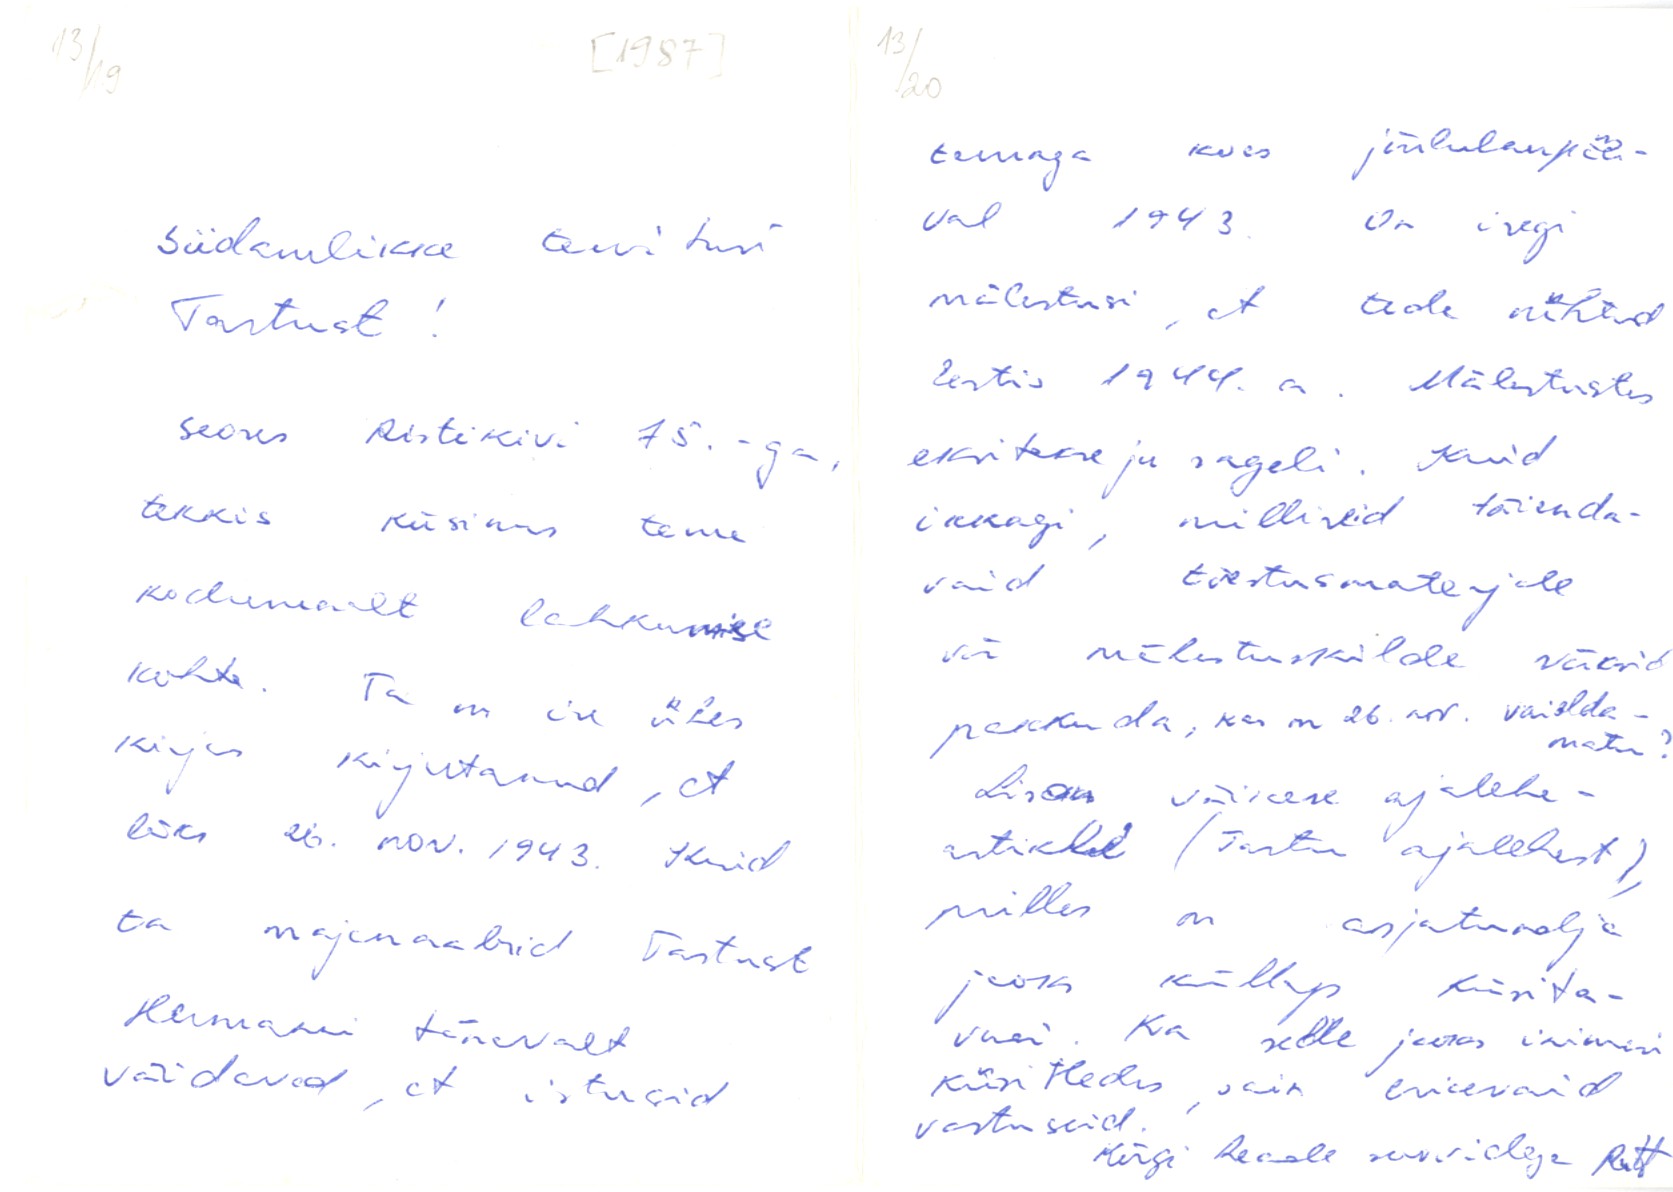 13/19
[1987]
Südamlikke tervitusi
Tartust!
Seoses Ristikivi 75.-ga,
tekkis küsimus tema
kodumaalt lahkumise
kohta. Ta on ise ühes
kirjas kirjutanud, et
läks 26. nov. 1943. Kuid
ta majanaabrid Tartust
Hermanni tänavalt
väidavad, et istusid
13/20
temaga koos jõululaupäe-
val 1943. On isegi
mälestusi, et teda nähtud
Eestis 1944. a. Mälestustes
eksitakse ju sageli. Kuid
ikkagi, milliseid täienda-
vaid tõestusmaterjale
või mälestuskilde võiksid
pakkuda, kas on 26. nov. vaielda-
matu?
Lisan väikese ajalehe-
artikli (Tartu ajalehest),
milles on asjatundja
jaoks küllap küsita-
vusi. Ka selle jaoks inimesi
küsitledes, sain erinevaid
vastuseid.
Kõigi heade soovidega Rutt